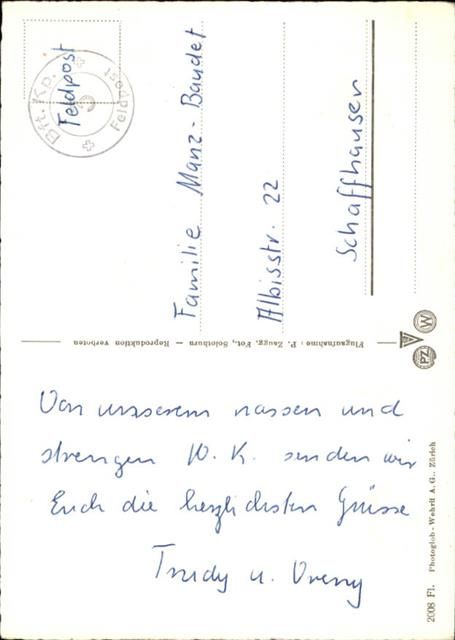 Feldpost
Bft. Kp.
Feldpost
Familie Manz-Baudet
Albisstr. 22
Schaffhausen
Flugaufnahme: P. Zaugg, Fot., Solothurn — Reproduktion verboten
PZ
W
Von unserem nassen und
strengen W. K. senden wir
Euch die herzlichsten Grüsse
Trudy u. Vreny
2008 Fl. Photoglob-Wehrli A.G., Zürich